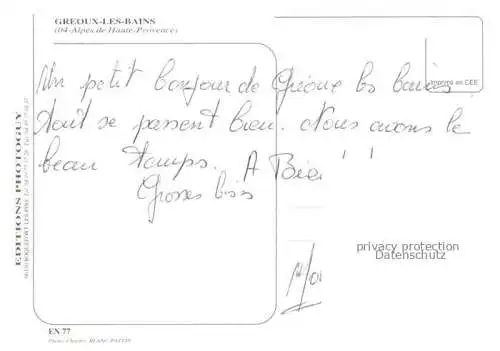 GREOUX-LES-BAINS
(04-Alpes de Haute-Provence)
Imprimé en CEE
Un petit bonjour de Gréoux les bains
tout se passent bien. Nous avons le
beau temps. A Bien
Grosses bises
EDITIONS PHOTOGUY
privacy protection
Datenschutz
EN 77